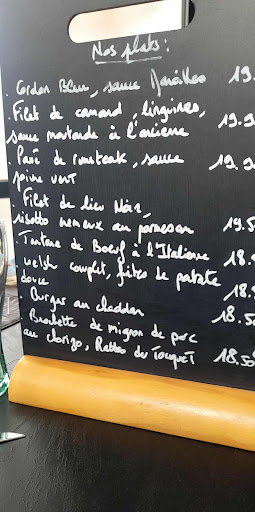 Nos plats :
. Cordon Bleu, sauce Maroilles 19.
. Filet de canard, linguines, 19.9
sauce moutarde à l'ancienne
. Pavé de rumsteak, sauce 19.9
poivre vert
. Filet de lieu Noir,
risotto crémeux au parmesan 19.5
. Tartare de Boeuf à l'Italienne 18.
. welsh complet, frites de patate 18.
douce
. Burger au cheddar 18.5
. Brochette de mignon de porc
au chorizo, Rattes du Touquet 18.50